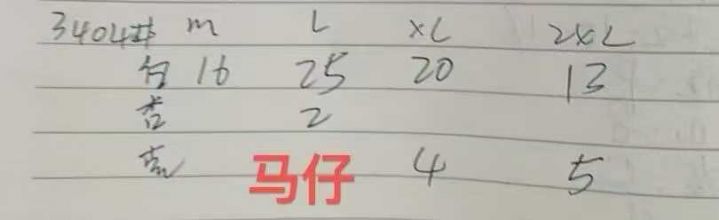 3404# M L XL 2XL
白 16 25 20 13
杏 2
马仔 4 5